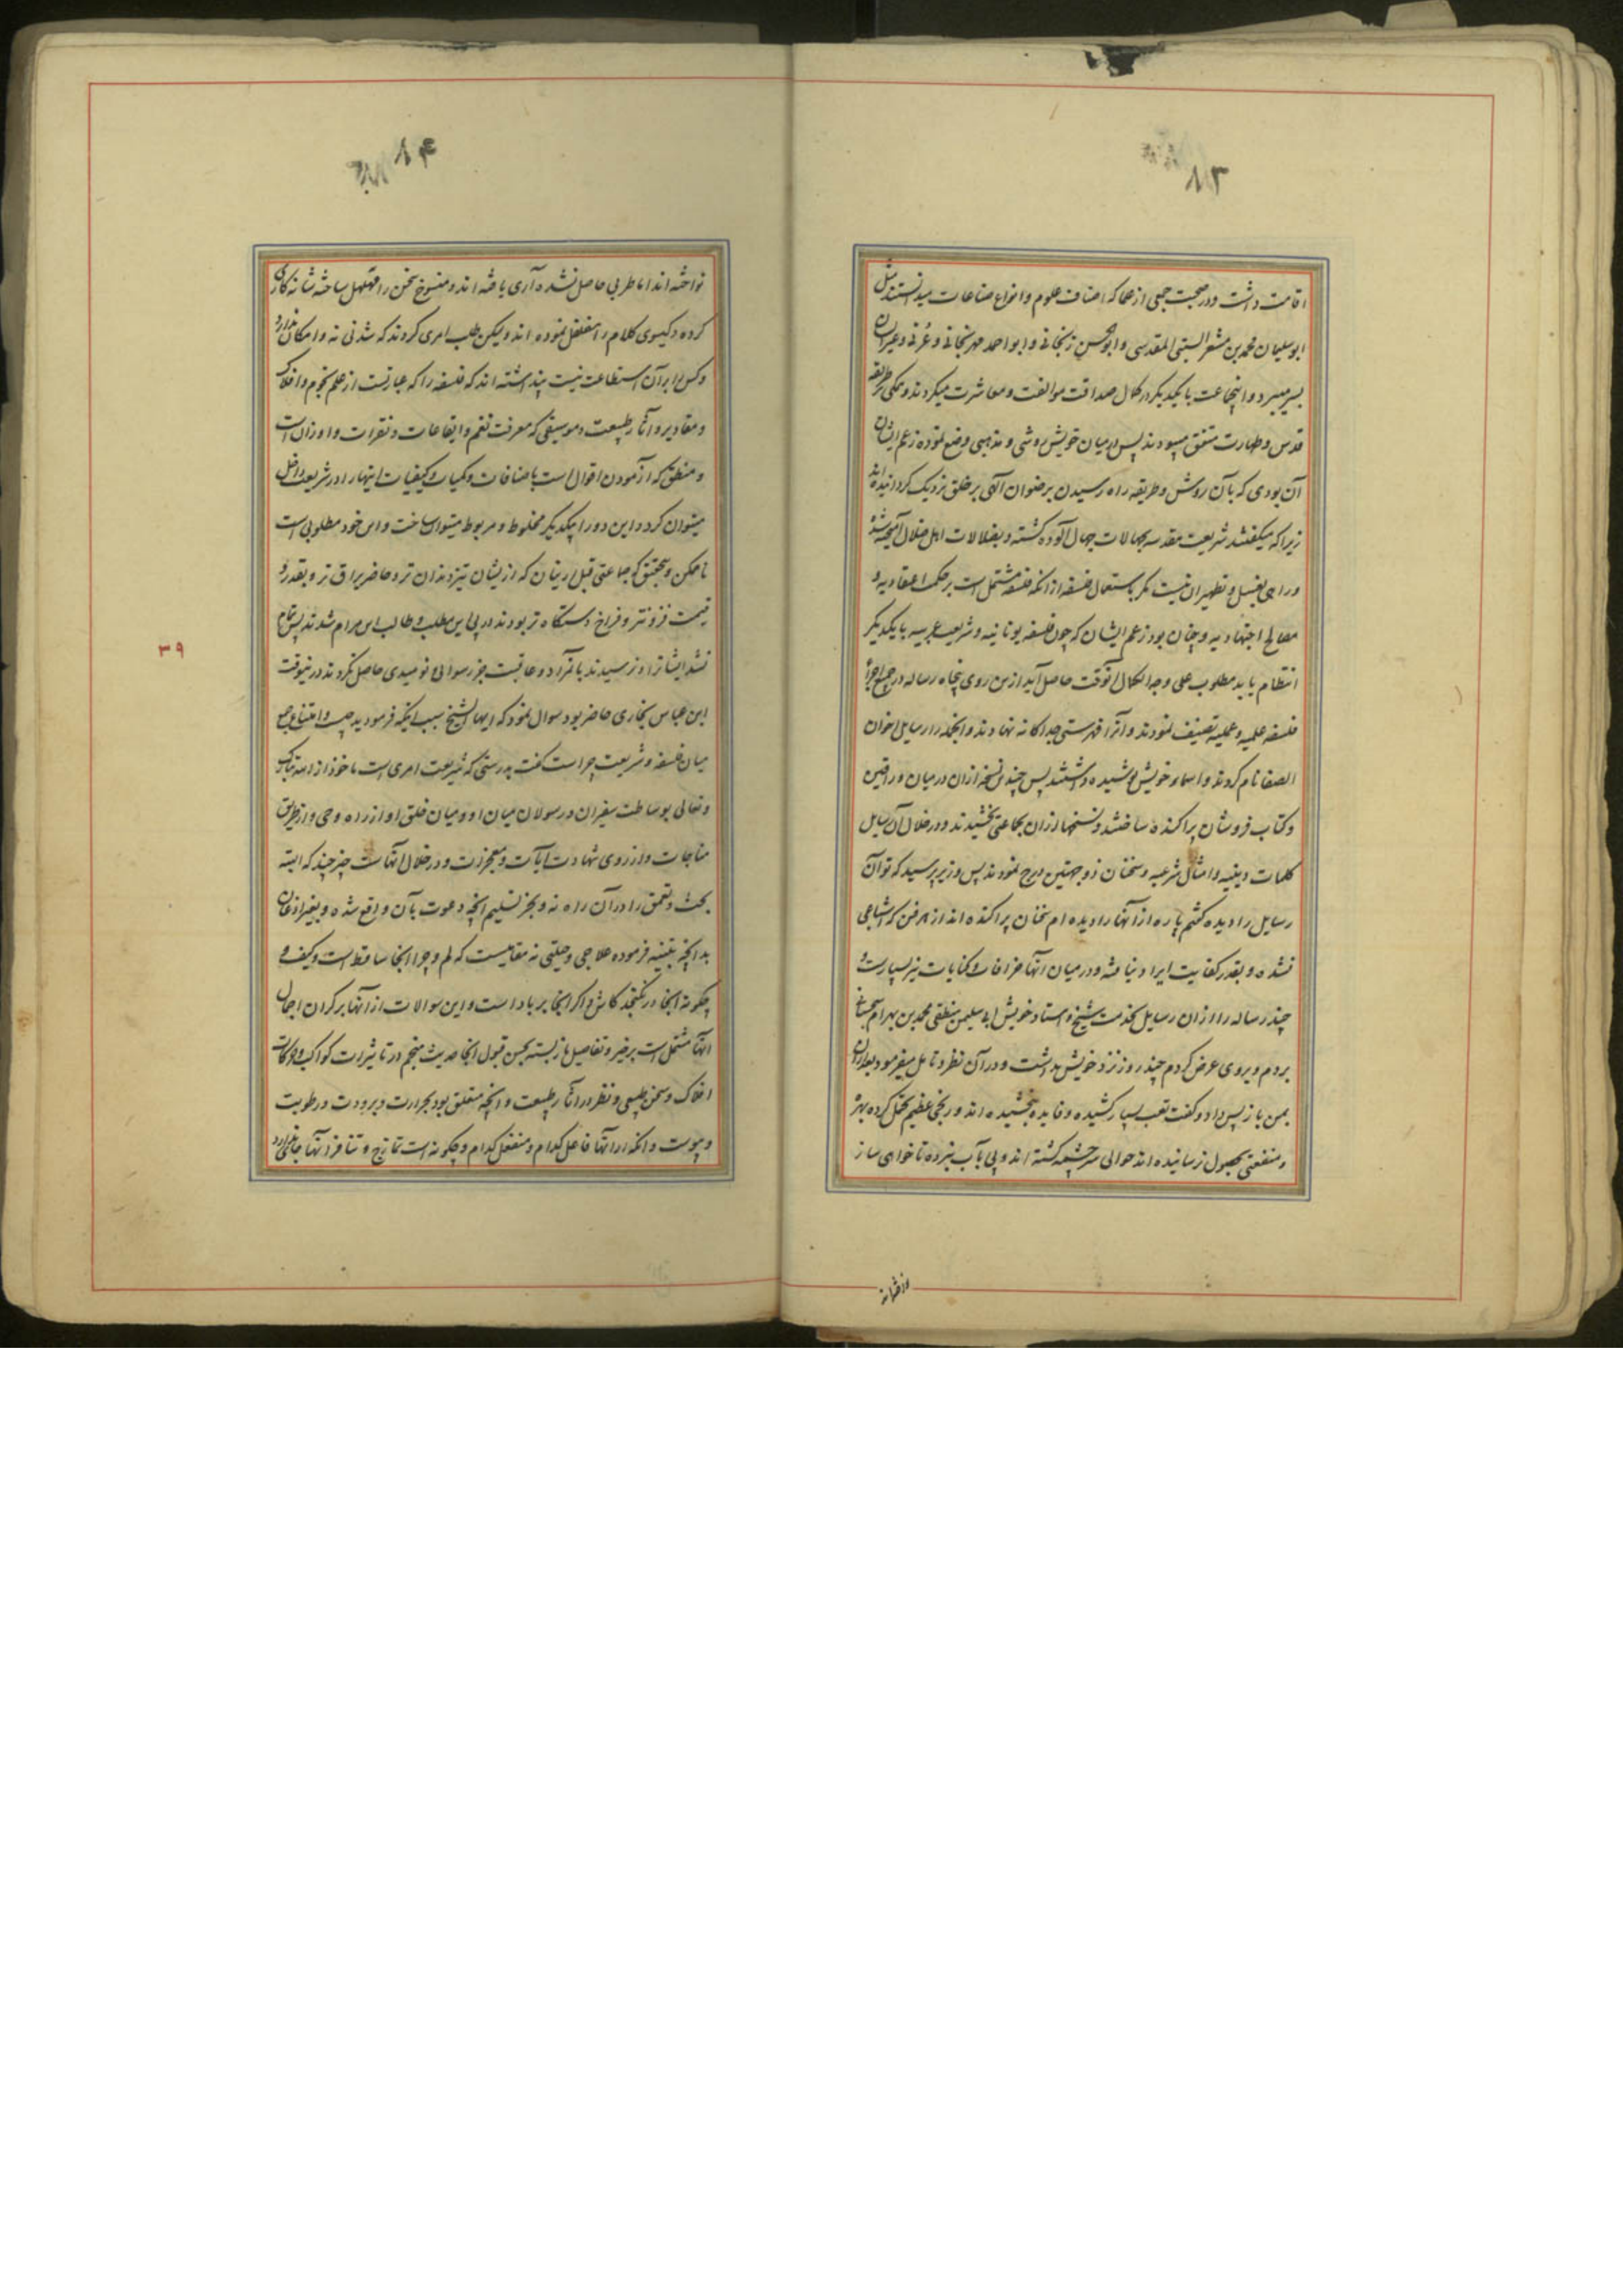 اقامت داشت و در صحبت جمعی از علما که اصناف علوم و انواع صناعات میدانستند مثل
ابو سلیمان محمد بن مشعر البستی المقدسی و ابو الحسن زنجانی و ابو احمد مهرنجانی و عُرفی و غیر ایشان
بسر میبرد و اینجماعت با یکدیگر در کمال صداقت موالفت و معاشرت میکردند و همگی بر طریقه
قدس و طهارت متفق میبودند پس در میان خویش روشی و مذهبی وضع نموده زعم ایشان
آن بودی که بآن روش و طریقه راه رسیدن برضوان آلهی بر خلق نزدیک گردانیده اند
زیرا که میگفتند شریعت مقدسه بجهالات جهال آلوده گشته و بضلالات اهل ضلال آمیخته شده
و راهی بغسل و تطهیر آن نیست مگر باستعمال فلسفه از آنکه فلسفه مشتمل است بر حکمت اعتقادیه و
مصالح اجتهادیه و چنان بود زعم ایشان که چون فلسفه یونانیه و شریعت عربیه با یکدیگر
انتظام یابد مطلوب علی وجه الکمال آنوقت حاصل آید ازین روی پنجاه رساله در جمیع اجزأ
فلسفه علمیه و عملیه تصنیف نمودند و آنرا فهرستی جداگانه نهادند و آنجمله را رسایل اخوان
الصفا نام کردند و اسماء خویش پوشیده داشتند پس چندین نسخه ازان در میان وراقین
و کتاب فروشان پراکنده ساختند و نسخها ازان بجماعتی بخشیدند و در خلال آن رسایل
کلمات دینیه و امثال شرعیه و سخنان ذوجهتین درج نمودند پس وزیر پرسید که تو آن
رسایل را دیده گفتم پاره از آنها را دیده ام سخنان پراکنده اند از هر فن که اشباعی
نشده و بقدر کفایت ایراد نیافته و در میان آنها خرافات و کنایات نیز بسیار است و
چند رساله را ازان رسایل بخدمت شیخ و استاد خویش ابی سلیمن منطقی محمد بن بهرام سجستانی
بردم و بروی عرض کردم چند روز نزد خویش بداشت و در آن نظر و تامل میفرمود بعد ازان
بمن باز پس داد و گفت تعب بسیار کشیده و فایده نبخشیده اند و رنجی عظیم تحمل کرده بهره
و منفعتی بحصول نرسانیده اند حوالی سرچشمه گشته اند و پی بآب نبرده تا خواهی ساز
نواخته اند اما طربی حاصل نشده آری یافته اند و منسوج سخن را مهلهل ساخته شانه کاری
کرده و گیسوی کلام را مفلفل نموده اند ولیکن طلب امری کردند که شدنی نه و امکان ندارد
و کس را بر آن استطاعت نیست پنداشته اند که فلسفه را که عبارتست از علم نجوم و افلاک
و مقادیر و آثار طبیعت و موسیقی که معرفت نغم و ایقاعات و نقرات و اوزان است
و منطق که آزمودن اقوال است باضافات و کمیات و کیفیات اینها را در شریعت داخل
میتوان کرد و این دو را بیکدیگر مخلوط و مربوط میتوان ساخت و این خود مطلوبی است
ناممکن و بتحقیق که جماعتی قبل ازینان که ازیشان تیز دندان تر و حاضر یراق تر و بقدر و
قیمت فزونتر و فراخ دستگاه تر بودند در پی این مطلب و طالب این مرام شدند پس تمام
نشد ایشانرا و نرسیدند بآنمراد و عاقبت جز رسوایی و نومیدی حاصل نکردند درینوقت
ابن عباس بخاری حاضر بود سوال نمود که ایها الشیخ سبب اینکه فرمودید چیست و امتناع جمع
میان فلسفه و شریعت چراست گفت بدرستی که شریعت امری است ماخوذ از الله تبارک
و تعالی بوساطت سفیران و رسولان میان او و میان خلق او از راه وحی و از طریق
مناجات و از روی شهادت آیات و معجزات و در خلال آنهاست چیز چند که البته
بحث و تعمق را در آن راه نه و بجز تسلیم آنچه دعوت بآن واقع شده و بغیر اذعان
بدانچه تنبیه فرموده علاجی و حیلتی نه مقامیست که لم و چرا آنجا ساقط است و کیف و
چگونه آنجا در نگنجد کاش و اگر آنجا بر باد است و این سوالات از آنها بر کران اجمال
آنها مشتمل است بر خیر و تفاصیل باز بسته بحسن قبول آنجا حدیث منجم در تاثیرات کواکب و حرکات
افلاک و سخن طبیعی و نظر در آثار طبیعت و آنچه متعلق بود بحرارت و برودت و رطوبت
و یبوست و آنکه از آنها فاعل کدام و منفعل کدام و چگونه است تمازج و تنافر آنها جای ندارد
۳۹